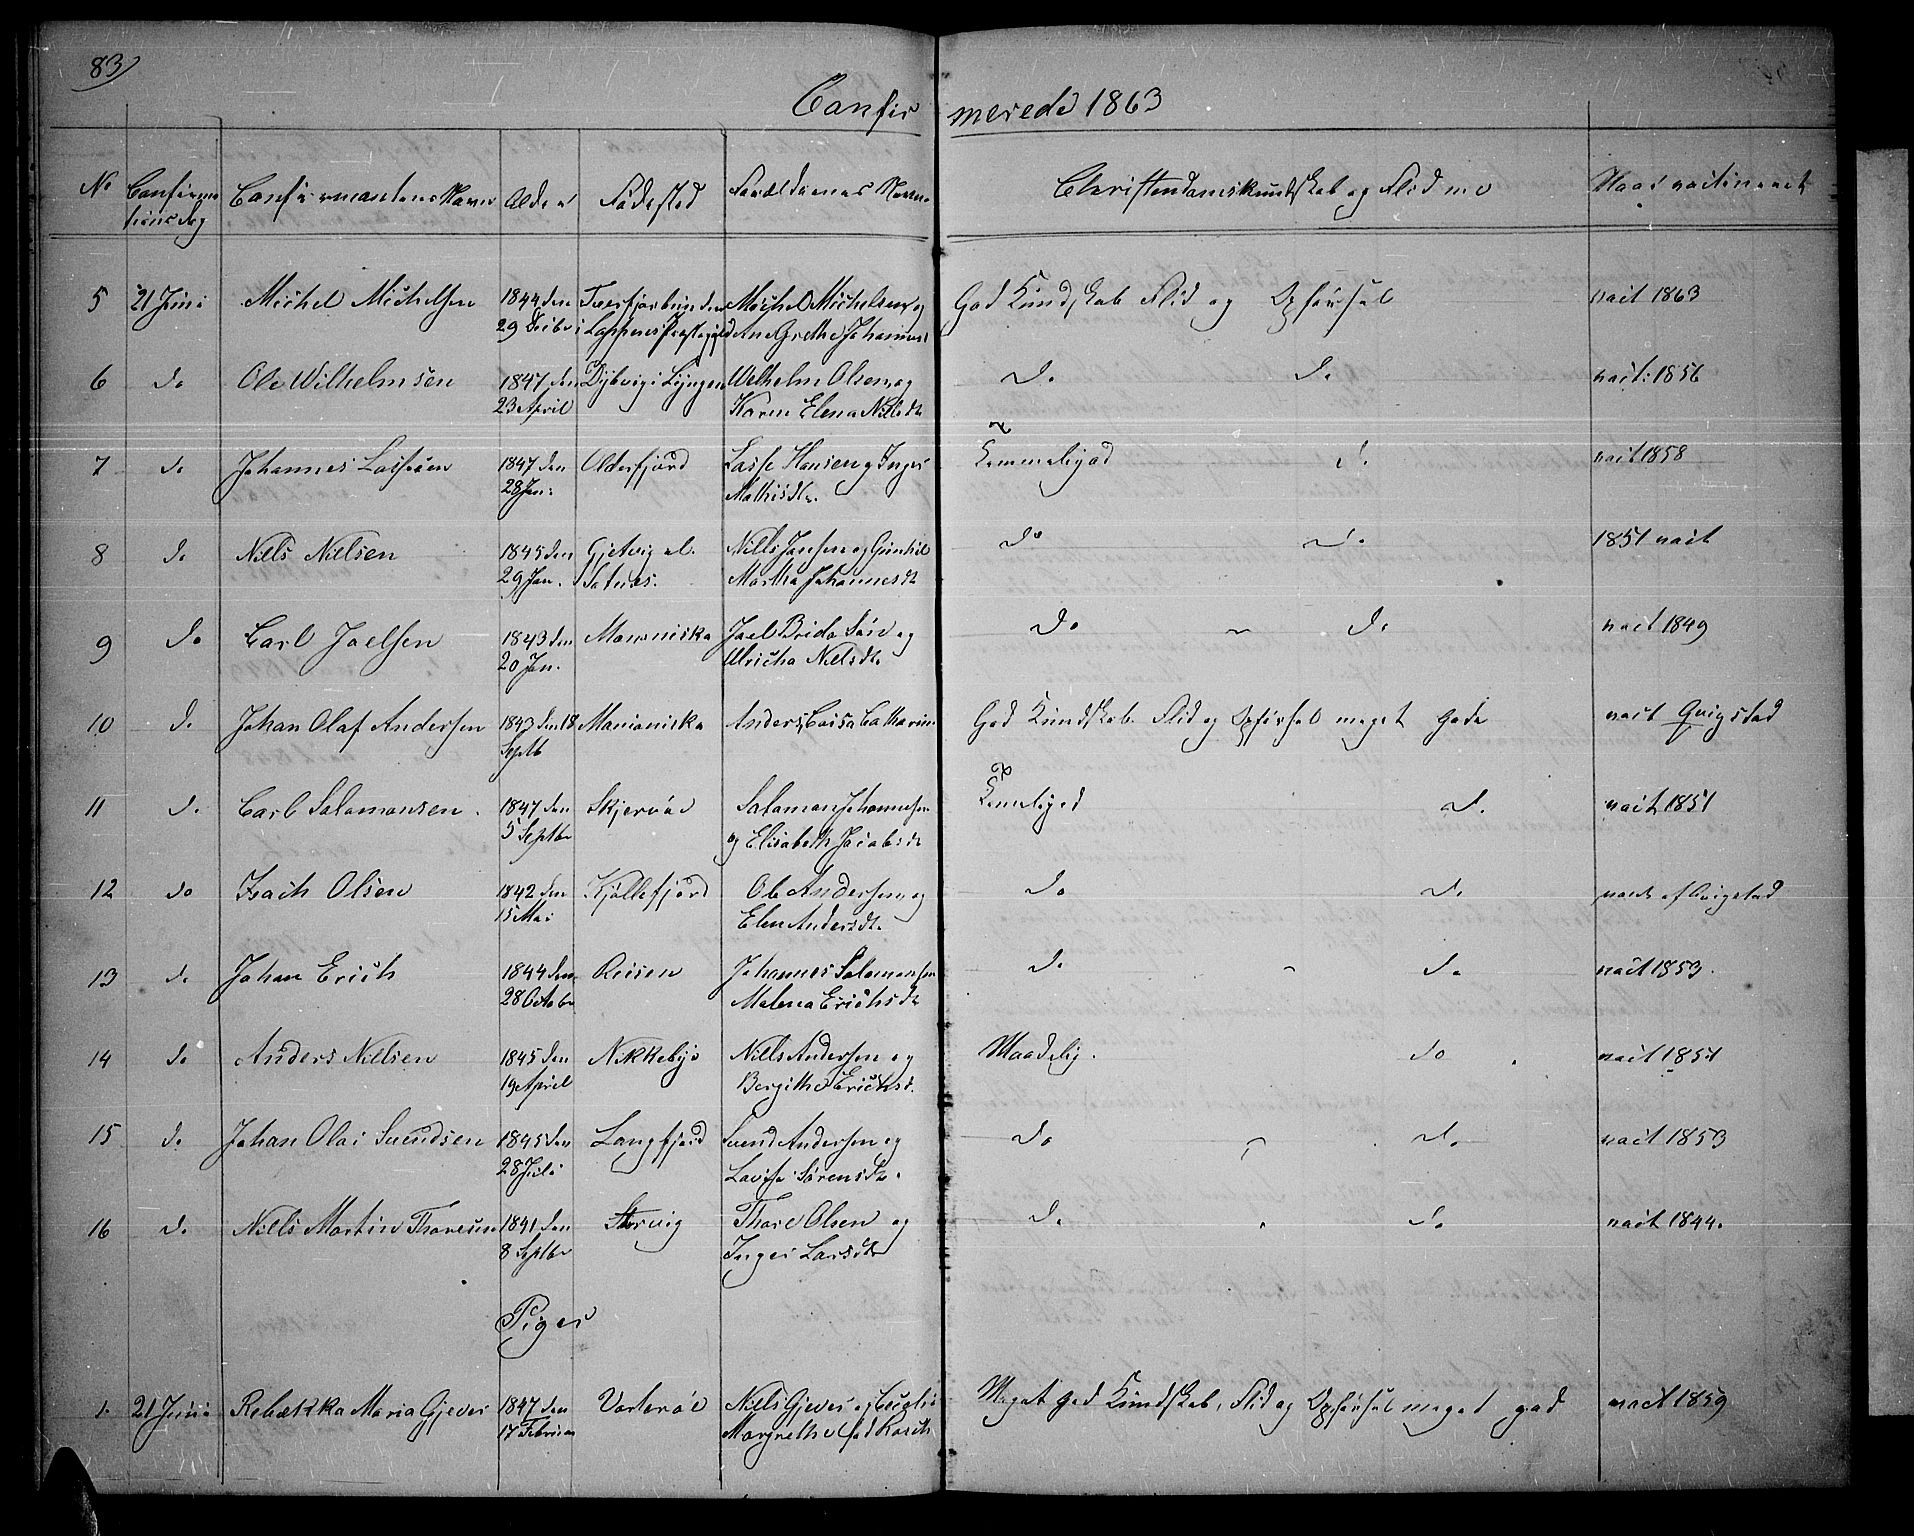 83)
Confir merede 1863
No Confirma Confirmantens Navn Alder Fødested Forældrenes Navn Christendomskundskab og Flid m v Naar vaccineret
tions Dag
5 21 Juni Michel Michelsen 1844 den Michel Michelsen og God Kundskab Flid og Opførsel vacc 1863
29 Decbr i Loppens Præstegjeld Ane Grethe Johannesd
6 do Ole Wilhelmsen 1847 den Dybvig i Lyngen Wilhelm Olsen og do do vacc: 1856
23 April Karen Elena Nilsdt
7 do Johannes Lassesen 1847 den Alderfjord Lasse Hansen og Inger Temmeligod do vacc 1858
28 Jan: Mathisdt.
8 do Niels Nielsen 1845 den Gjetvig al. Niels Jensen og Gunhil do do 1851 vacc
29 Jan. Martha Johannesdt
9 do Carl Joelsen 1843 den Joel Brido Søn og do " do vacc 1849
20 Jan. Ulricha Nielsdt
10 do Johan Olaf Andersen 1843 den 18 Anders, Caisa Catharin God Kundskab Flid og Opførsel meget gode vacc Qvigstad
Septb
11 do Carl Salamonsen. 1847 den Skjervøe Salamon Johannesen Temmeligod do vacc 1851
5 Septbr og Elisabeth Jacobsdt
12 do Isach Olsen 1842 den Kjøllefjord Ole Andersen og do do vacc af Qvigstad
15 Mai Elen Andersdt.
13 do Johan Erich 1844 den Reisen Johannes Salamonsen do " do vacc 1853.
28 Octobr Malena Erichsdt
14 do Anders Nielsen 1845 den Nikkebye Niels Andersen og Maadelig. do vacc 1851
19 April Bergithe Erichsd.
15 do Johan Olai Svendsen 1845 den Langfjord Svend Andersen og do " do vacc 1853
28 Juli Lovise Sørensdt.
16 do Niels Martin Thoresen 1841 den Storvig Thore Olsen og do " do vacc 1844.
8 Septbr Inger Larsdt
Piger
1. 21 Juni Rebækka Maria Gjever 1847 den Vorterøe Niels Gjever og Cecelie Meget god Kundskab, Flid og Opførsel meget god vacc 1859
17 Februar Margrethe fød Kosch